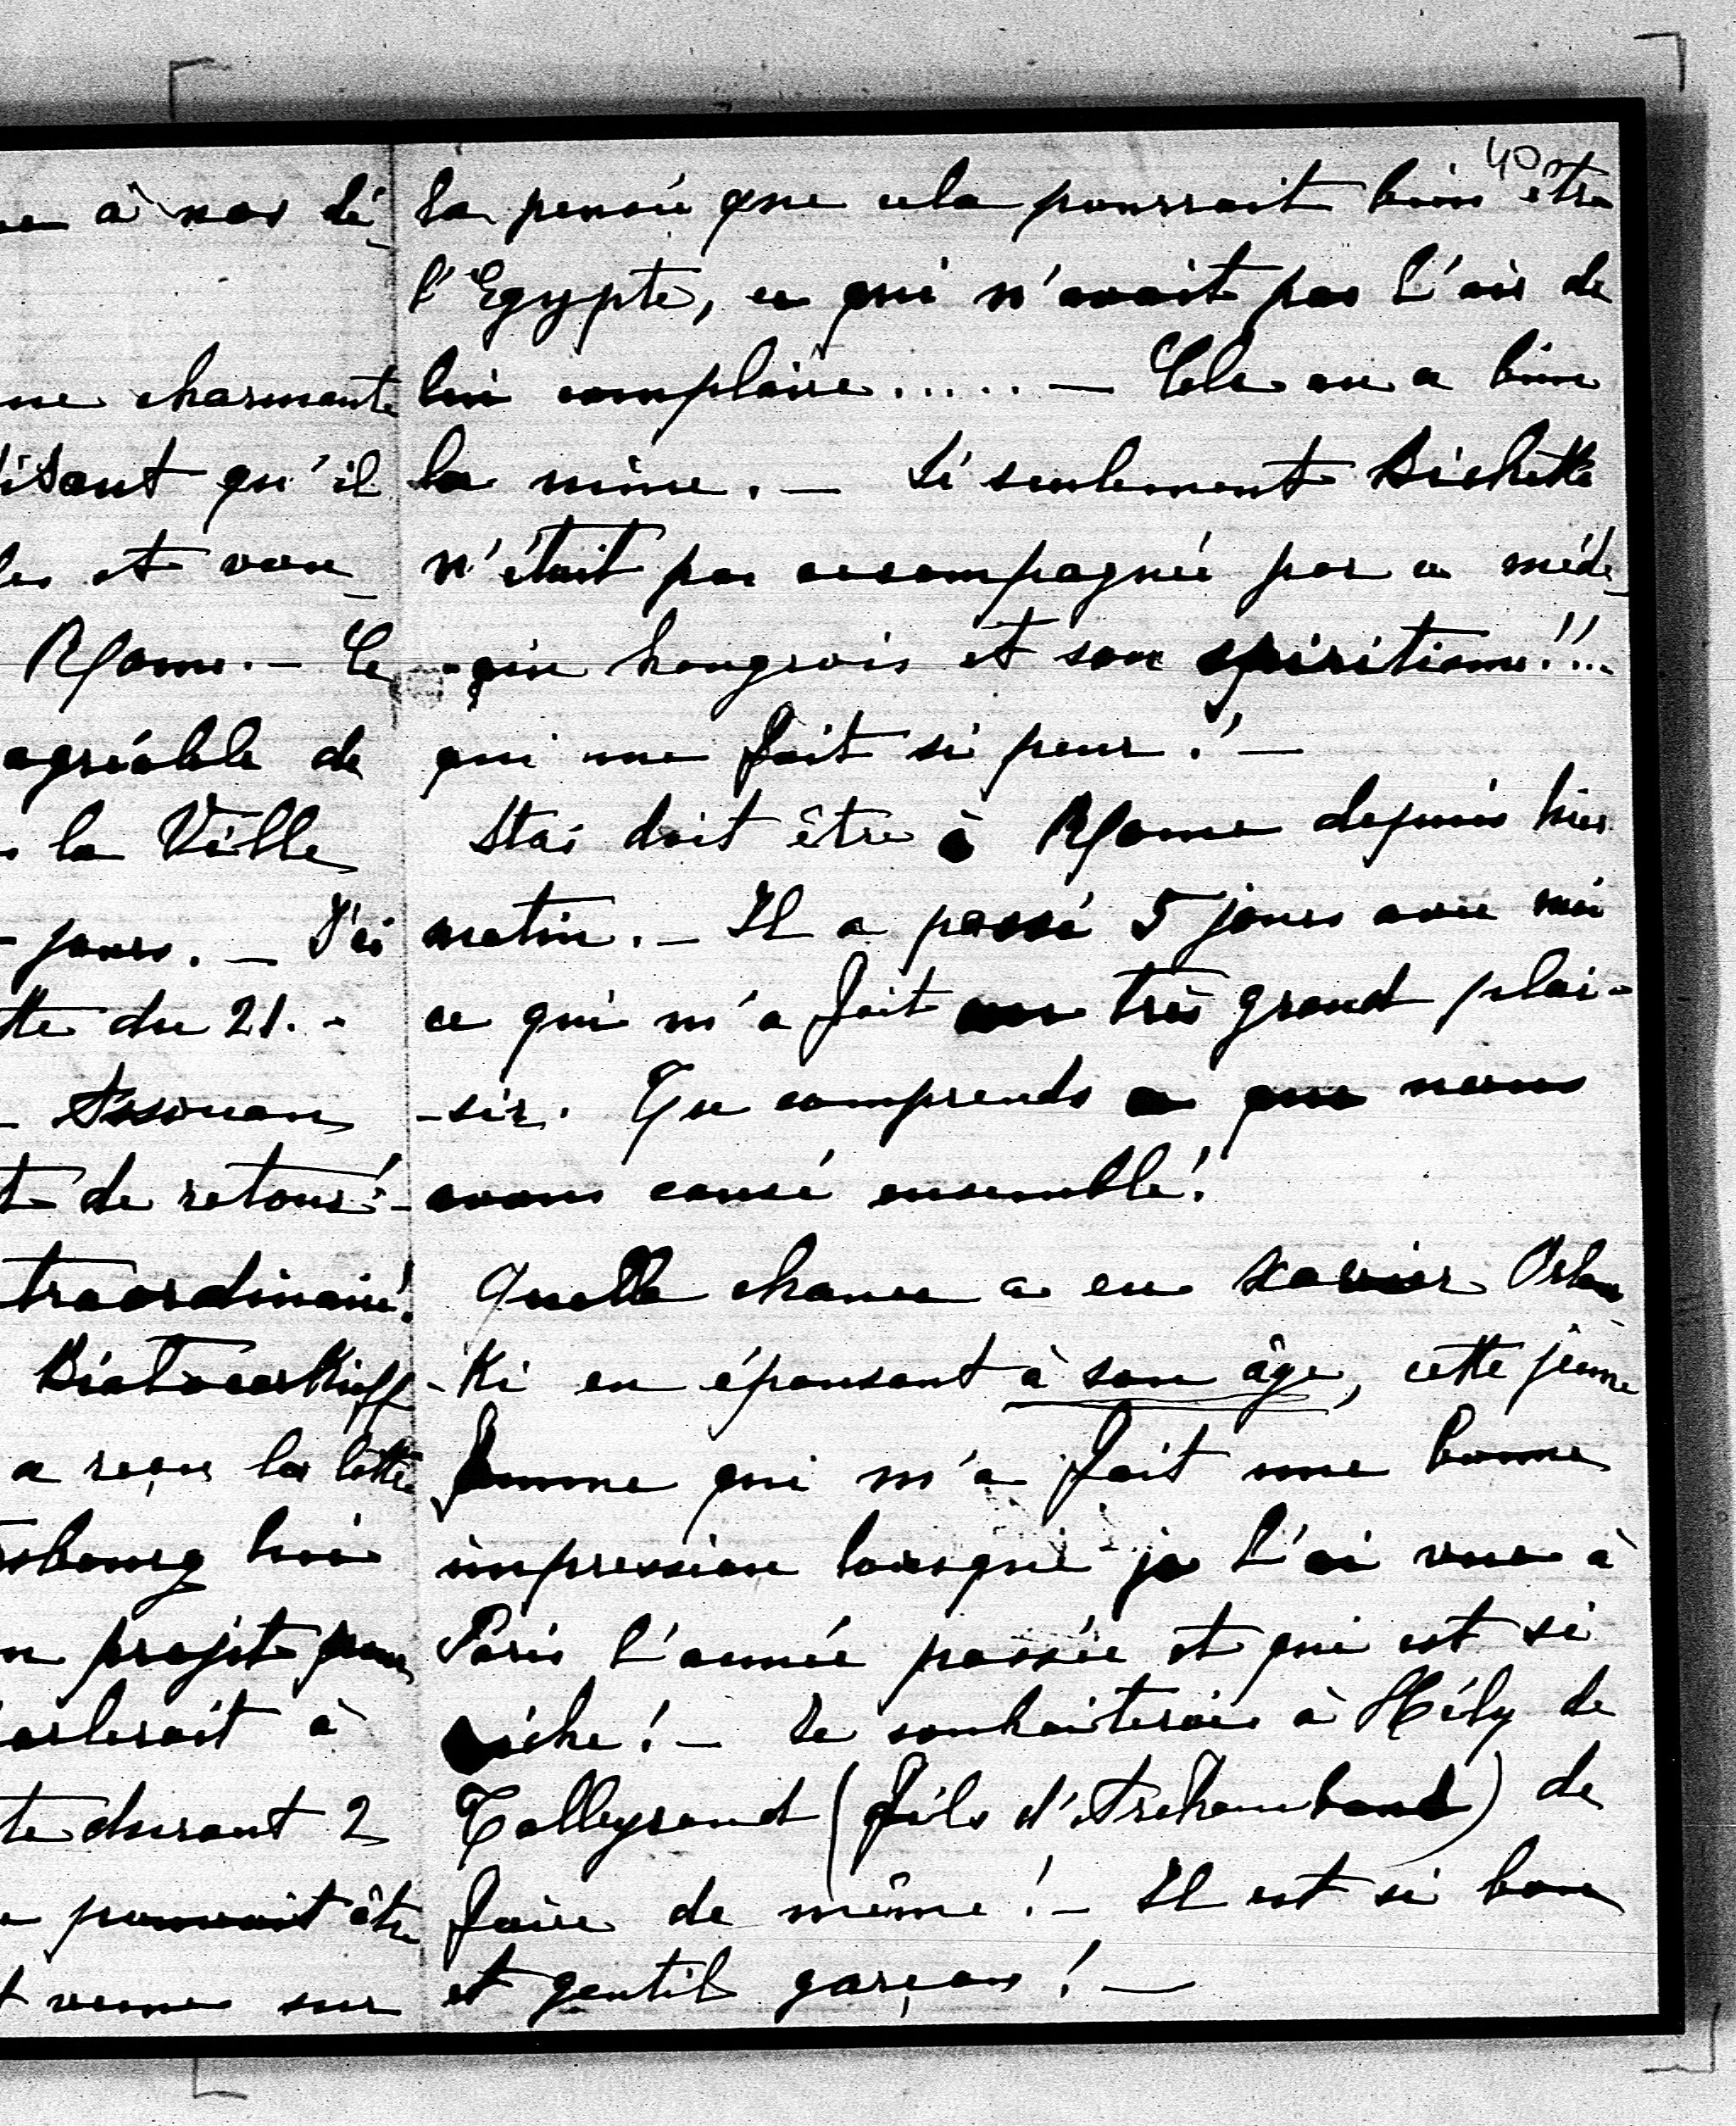 40
à nos dé-
charmante
disant qu'il
les et vou-
Rome. — Ce
agréable de
la Ville
jours. — J'ai
du 21. -
Assouan
de retour! -
traordinaire!
Biatocerkieff
a reçu la lettre
rsbourg hier
projet pour
parlerait à
durant 2
pourrait être
venue sur
la pensée que cela pourrait bien être
l'Egypte, ce qui n'avait pas l'air de
lui complaire..... — Cela en a bien
la mine. — Si seulement Bichette
n'était pas accompagnée par ce méde-
-cin hongrois et son spiritisme!!..
qui me fait si peur! —
Stas doit être à Rome depuis hier
matin. — Il a passé 5 jours avec moi
ce qui m'a fait un très grand plai-
-sir. Tu comprends ce que nous
avons causé ensemble!
Quelle chance a eu Xavier Orlow
-Ki en épousant à son âge, cette jeune
femme qui m'a fait une bonne
impression lorsque je l'ai vue à
Paris l'année passée et qui est si
riche! — Je souhaiterais à Hély de
Talleyrand (fils d'Archambaud) de
faire de même! — Il est si bon
et gentil garçon! —